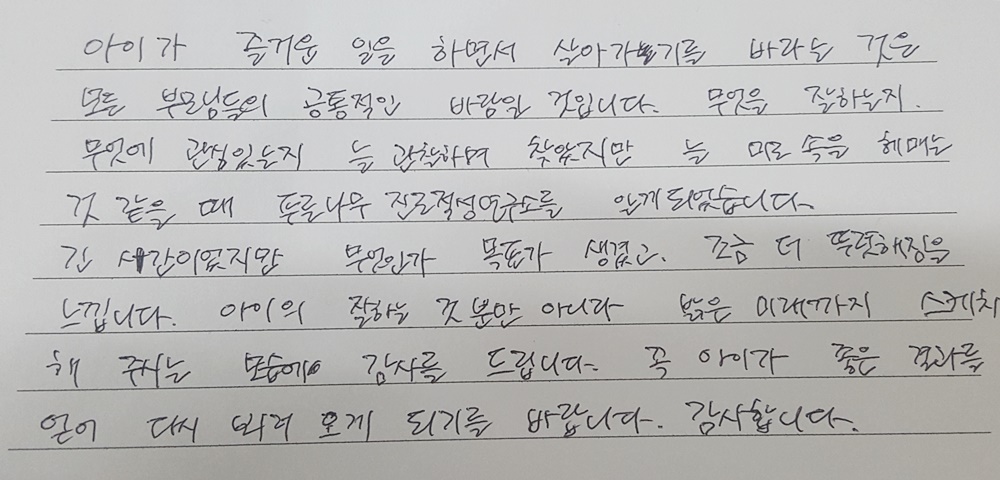 아이가 즐거운 일을 하면서 살아가기를 바라는 것은
모든 부모님들의 공통적인 바람일 것입니다. 무엇을 잘하는지.
무엇에 관심있는지 늘 관찰하며 찾았지만 늘 미로 속을 헤매는
것 같을 때 푸른나무 진로적성연구소를 알게되었습니다.
긴 시간이었지만 무엇인가 목표가 생겼고. 조금 더 뚜렷해짐을
느낍니다. 아이의 잘하는 것 뿐만 아니라 밝은 미래까지 스케치
해 주시는 모습에 감사를 드립니다. 꼭 아이가 좋은 결과를
얻어 다시 봐러 오게 되기를 바랍니다. 감사합니다.